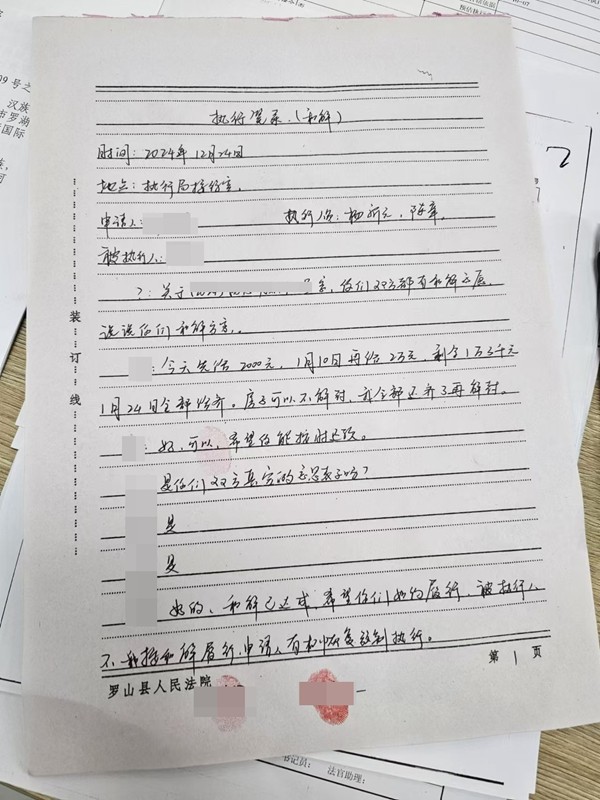 执行笔录（和解）
时间：2024年12月24日
地点：执行局接待室
申请人： 执行人员：杨新元、陈章
被执行人：
？：关于 案，你们双方都有和解意愿，
说说你们和解方案。
：今天先给2000元，1月10日再给2万元，剩余1万3千元
1月24日全部给齐。房子可以不解封，我全部还齐了再解封。
：好，可以，希望你能按时还款。
是你们双方真实的意思表示吗？
是
是
好的，和解已达成，希望你们如约履行，被执行人
不按和解履行，申请人有权恢复强制执行。
罗山县人民法院
第 1 页
装订线
09号之
汉族
市罗湖
国际
书记员： 法官助理：
2